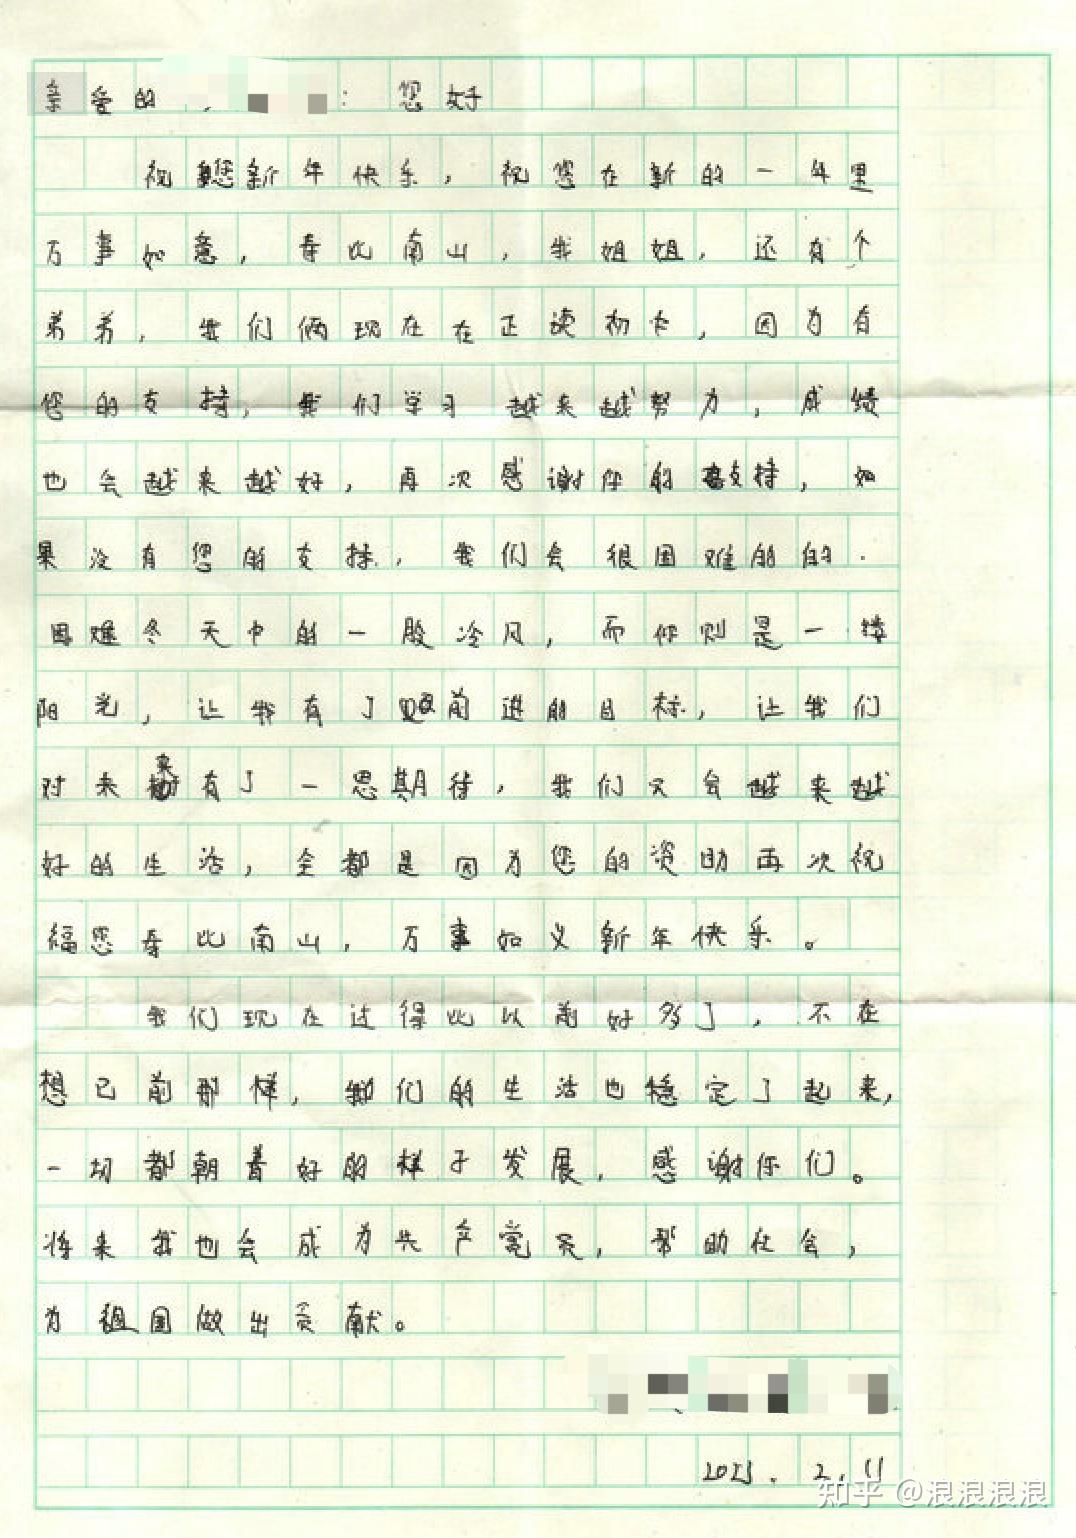 亲爱的 : 您好
祝您新年快乐，祝您在新的一年里
万事如意，寿比南山，我姐姐，还有个
弟弟，我们俩现在在正读初大，因为有
您的支持，我们学习越来越努力，成绩
也会越来越好，再次感谢你的支持，如
果没有您的支持，我们会很困难的的.
困难冬天中的一股冷风，而你则是一缕
阳光，让我有了前进的目标，让我们
对未来有了一思期待，我们又会越来越
好的生活，全都是因为您的资助再次祝
福您寿比南山，万事如义新年快乐。
我们现在过得比以前好多了，不在
想已前那样，我们的生活也稳定了起来，
一切都朝着好的样子发展，感谢你们。
将来我也会成为共产党员，帮助社会，
为祖国做出贡献。
2023.2.11
知乎 @浪浪浪浪